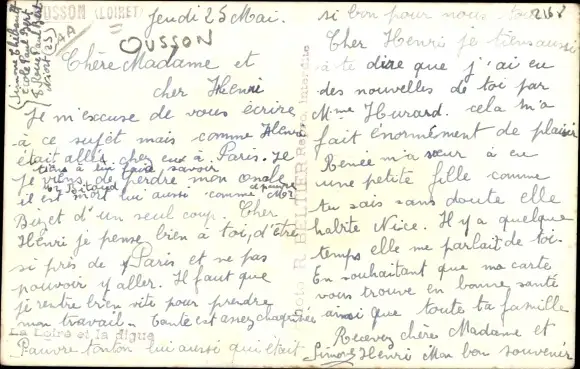 OUSSON (LOIRET)
Jeudi 25 Mai.
OUSSON
Simone
Ecole Paul Bert
Rue Paul Bert
Niort (2S)
Chère Madame et
cher Henri
Je m'excuse de vous écrire
à ce sujet mais comme Henri
était allé chez eux à Paris. Je
tiens à lui faire savoir
Je viens de perdre mon oncle
il est mort lui aussi comme Mr
et d'un seul coup. Cher
Henri je pense bien à toi, d'être
si près de Paris et ne pas
pouvoir y aller. Il faut que
je rentre bien vite pour prendre
mon travail. Tante est assez chagrinée
La Loire et la digue
Pauvre tonton lui aussi qui était
si bon pour nous
2168
Cher Henri je tiens aussi
à te dire que j'ai eu
des nouvelles de toi par
Mme Hurard. cela m'a
fait énormément de plaisir
Renée m'a sœur à eu
une petite fille comme
tu sais sans doute elle
habite Nice. Il y a quelque
temps elle me parlait de toi.
En souhaitant que ma carte
vous trouve en bonne santé
ainsi que toute ta famille
Recevez chère Madame et
Henri Mon bon souvenir
Simone
Photo R. Repro. Interdite